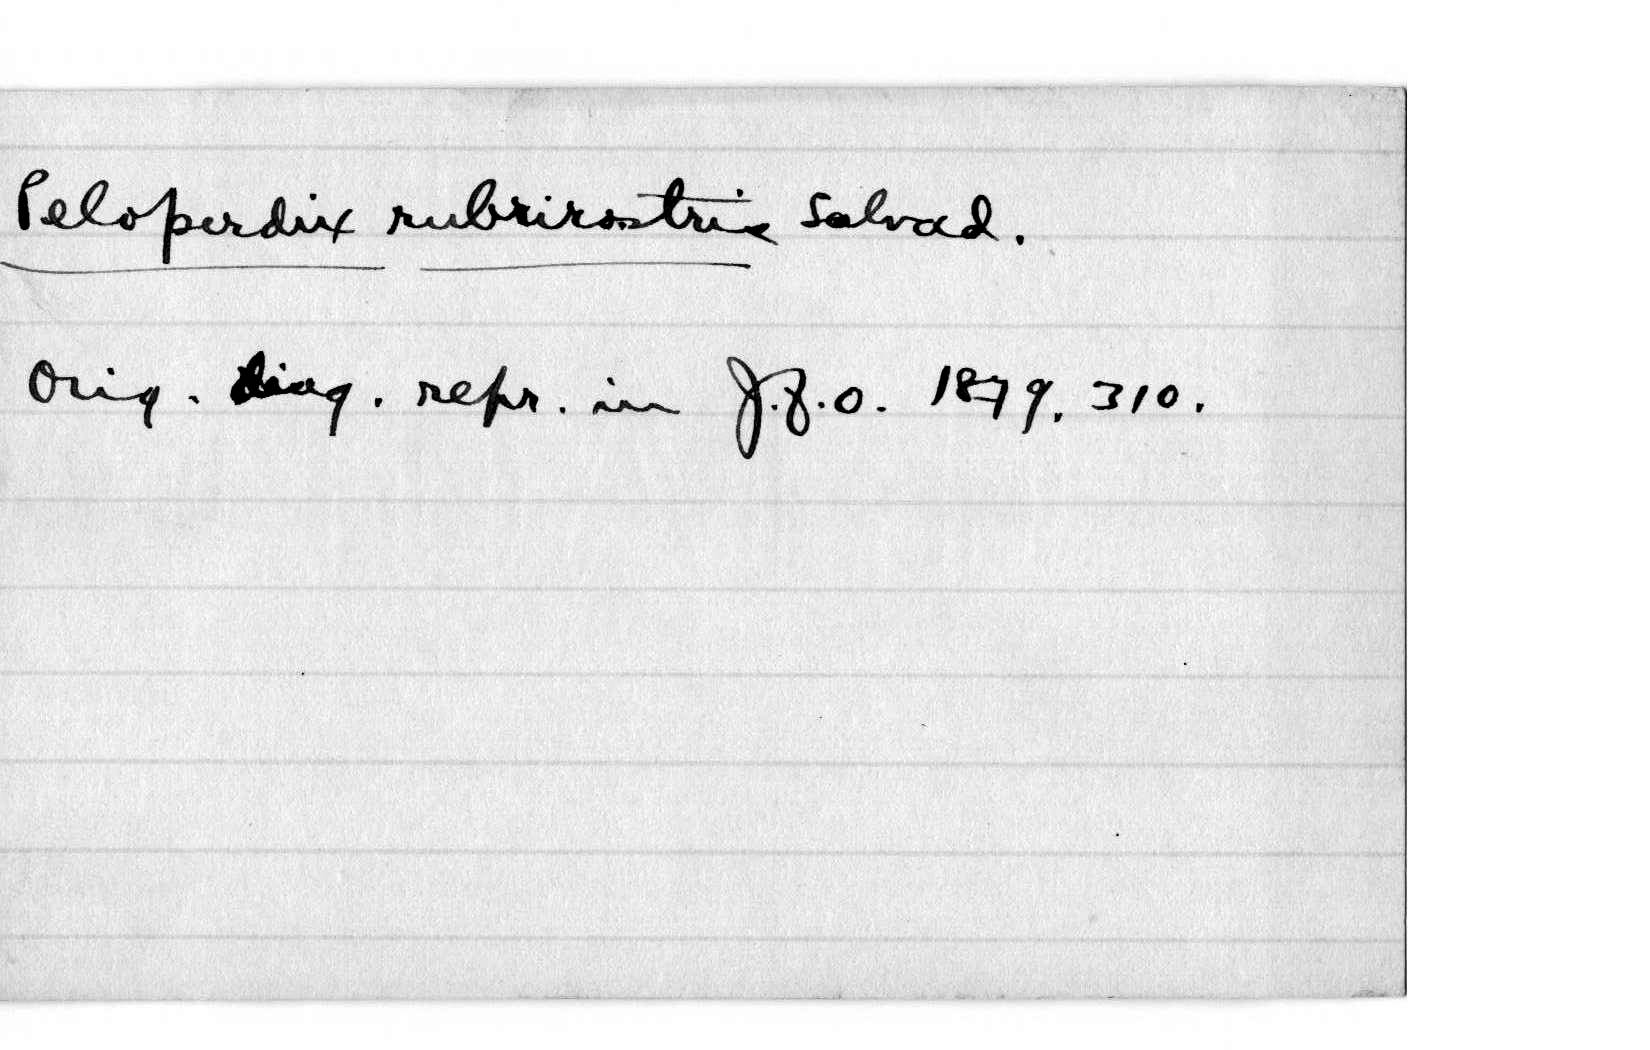 Peloperdix rubrirostris Salvad.
Orig. diag. repr. in J.f.O. 1879, 310.